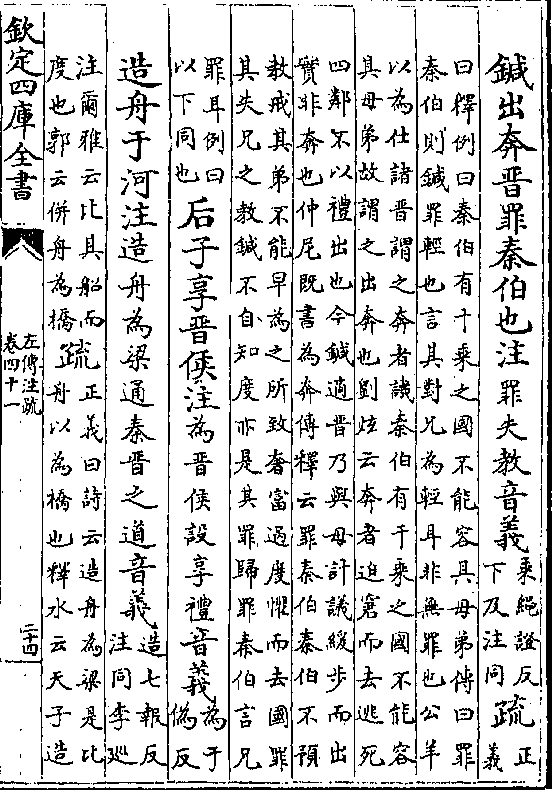 鍼出奔晉罪秦伯也注罪失教音義乘繩證反下及注同疏正義
曰釋例曰秦伯有千乘之國不能容其母弟傳曰罪
秦伯則鍼罪輕也言其對兄為輕耳非無罪也公羊
以為仕諸晉謂之奔者譏秦伯有千乘之國不能容
其母弟故謂之出奔也劉炫云奔者迫窘而去逃死
四鄰不以禮出也今鍼適晉乃與母計議緩步而出
實非奔也仲尼既書為奔傳釋云罪秦伯秦伯不預
教戒其弟不能早為之所致奢富過度懼而去國罪
其失兄之教鍼不自知度亦是其罪歸罪秦伯言兄
罪耳例曰以下同也后子享晉侯注為晉侯設享禮音義為于偽反
造舟于河注造舟為梁通秦晉之道音義造七報反注同李廵
注爾雅云比其船而度也郭云併舟為橋疏正義曰詩云造舟為梁是比舟以為橋也釋水云天子造
欽定四庫全書
左傳注疏
卷四十一
二十四